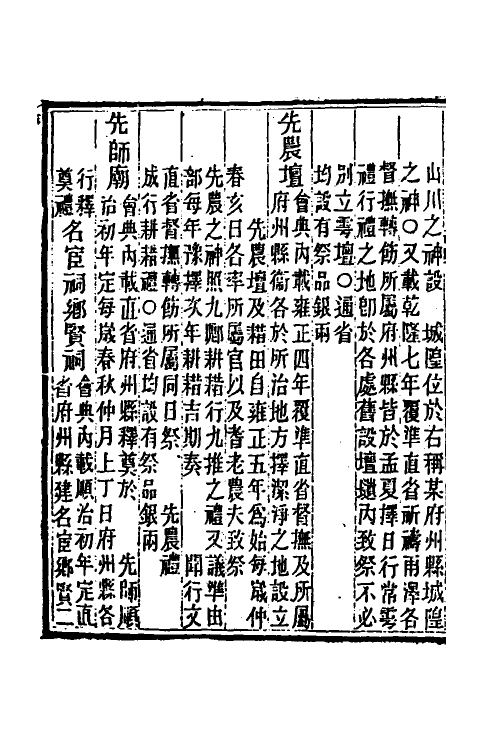 山川之神設　城隍位於右稱某府州縣城隍
之神○又載乾隆七年覆準直省祈禱雨澤各
督撫轉飭所屬府州縣皆於孟夏擇日行常雩
禮行禮之地卽於各處舊設壇壝內致祭不必
別立雩壇○通省
均設有祭品銀兩
先農壇會典內載雍正四年覆準直省督撫及所屬
府州縣衞各於所治地方擇潔淨之地設立
先農壇及耤田自雍正五年爲始每歲仲
春亥日各率所屬官以及耆老農夫致祭
先農之神照九卿耕耤行九推之禮又議準由
部每年豫擇次年耕耤吉期奏　聞行文
直省督撫轉飭所屬同日祭　先農禮
成行耕耤禮○通省均設有祭品銀兩
先師廟會典內載直省府州縣釋奠於　先師順
治初年定每歲春秋仲月上丁日府州縣各
行釋
奠禮名宦祠鄉賢祠會典內載順治初年定直
省府州縣建名宦鄉賢二